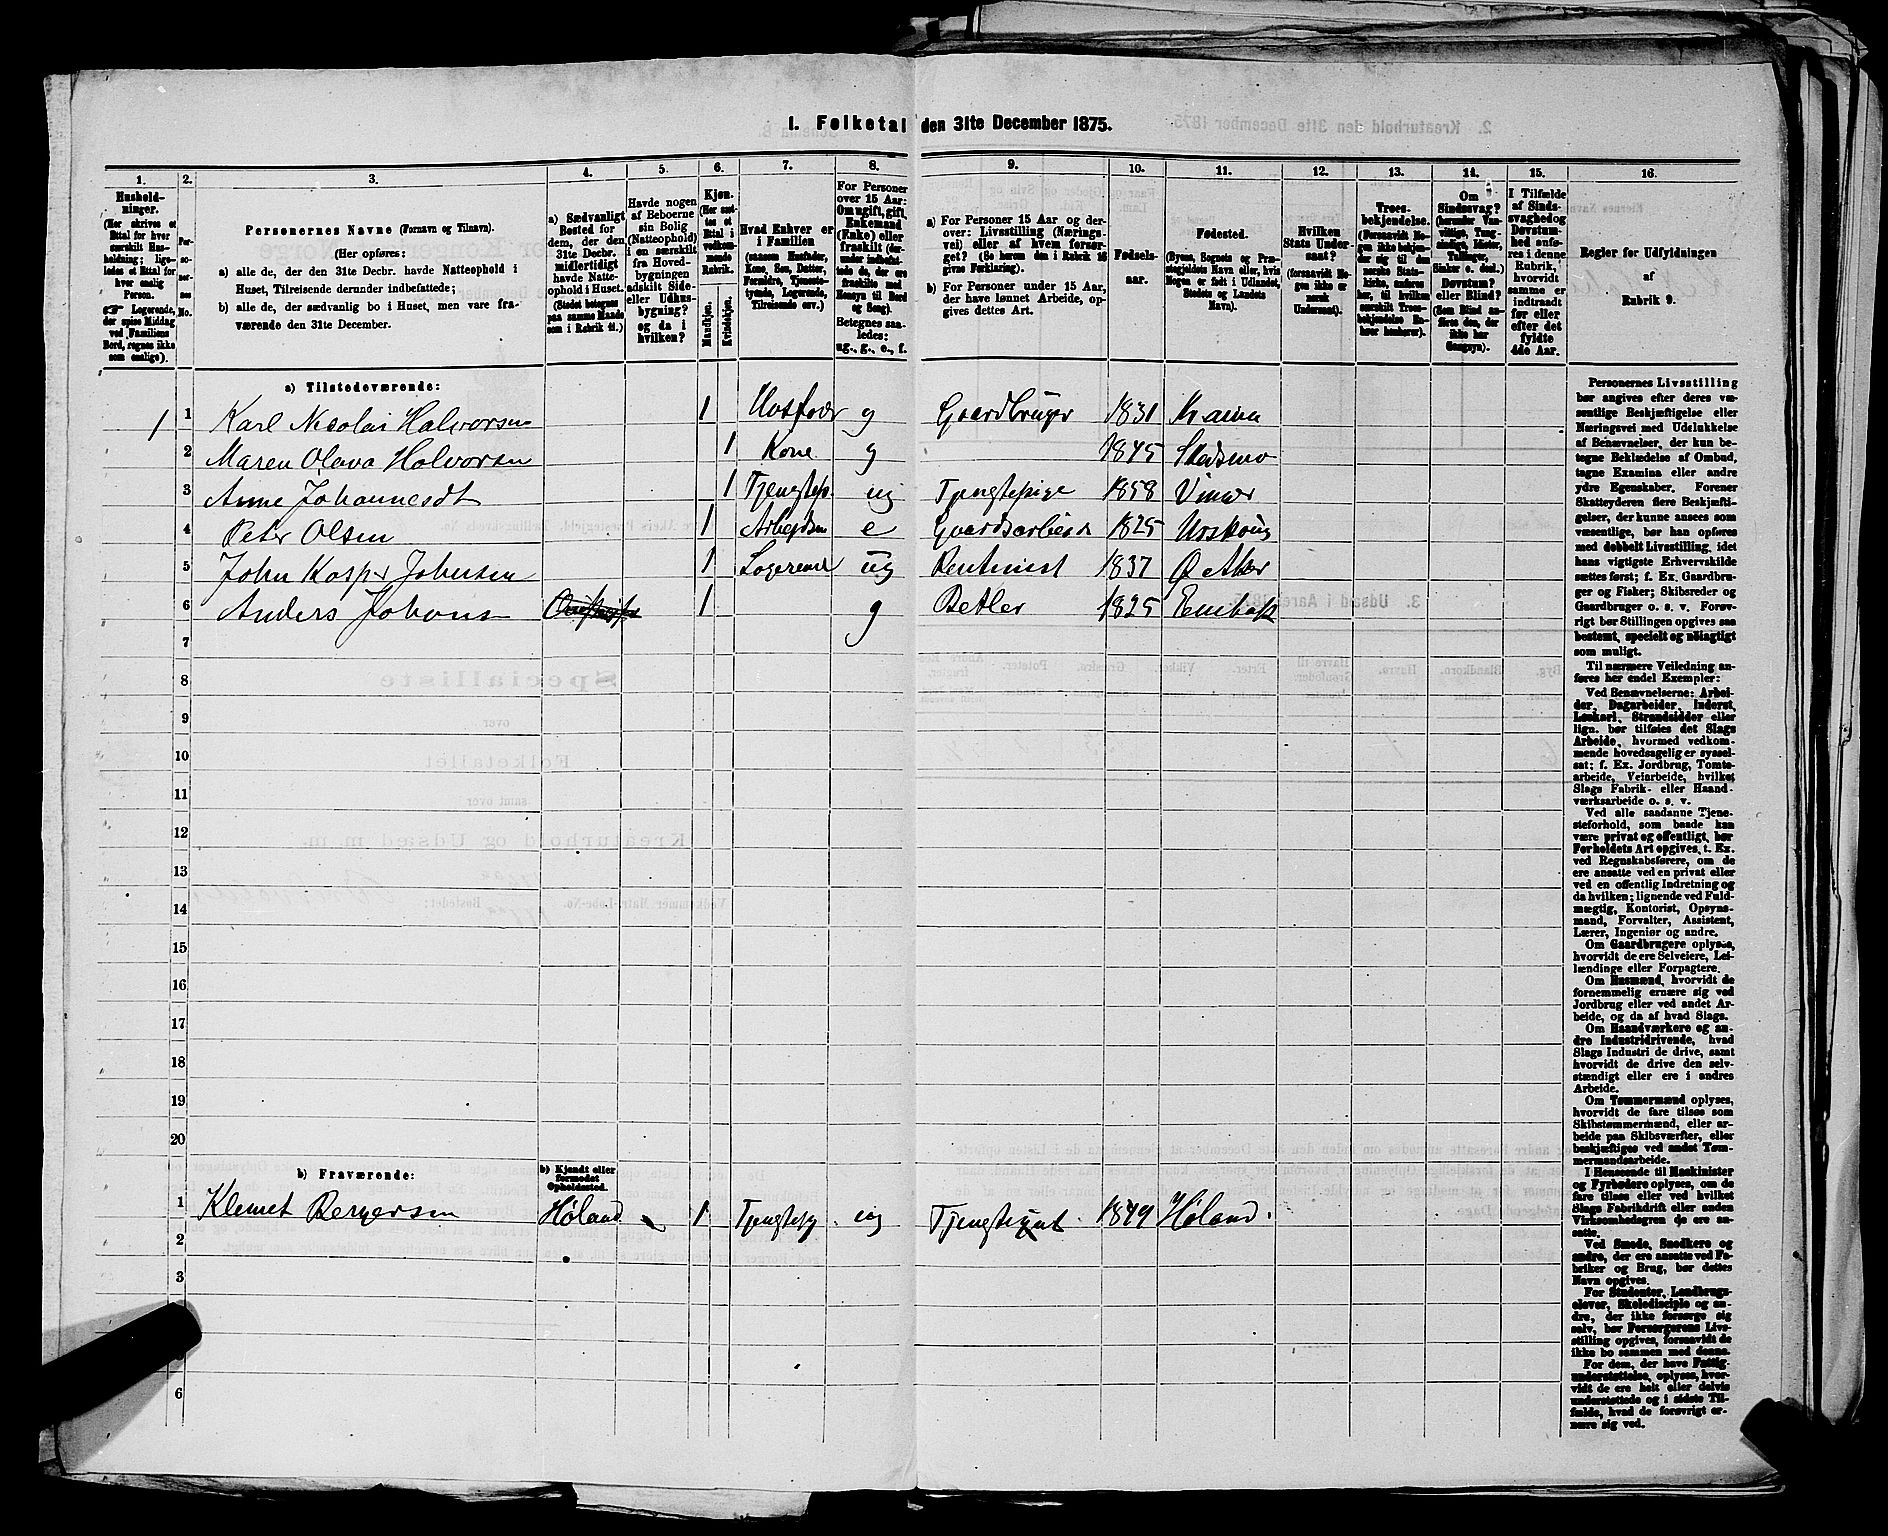 1. Folketal den 31te December 1875.
1. 2. 3. 4. 5. 6. 7. 8. 9. 10. 11. 12. 13. 14. 15. 16.
Hushold-
ninger.
(Her skrives et
Ettal for hver
særskilt Hus-
holdning; lige-
ledes et Ettal for
hver enslig
Person.
Logerende,
der spise Middag
ved Familiens
Bord, regnes ikke
som enslige).
Per-
so-
ner-
nes
No.
Personernes Navne (Fornavn og Tilnavn).
(Her opføres:
a) alle de, der den 31te Decbr. havde Natteophold i
Huset, Tilreisende derunder indbefattede;
b) alle de, der sædvanlig bo i Huset, men vare fra-
værende den 31te December.
a) Sædvanligt
Bosted for
dem, der den
31te Decbr.
midlertidigt
havde Natte-
ophold i Huset.
(Stedet betegnes
paa samme Maade
som i Rubrik 11.)
Havde nogen
af Beboerne
sin Bolig
(Natteophold)
i en særskilt
fra Hoved-
bygningen
adskilt Side-
eller Udhus-
bygning?
og da i
hvilken?
Kjøn.
(Her sæt-
tes et
Ettal i
vedkom-
mende
Rubrik.
Mandkjøn.
Kvindekjøn.
Hvad Enhver er
i Familien
(saasom Husfader,
Kone, Søn, Datter,
Forældre, Tjeneste-
tyende, Logerende,
Tilreisende osv.)
For Personer
over 15 Aar:
Om ugift, gift,
Enkemand
(Enke) eller
fraskilt (der-
under indbefat-
tede de, der ere
fraskilte med
Hensyn til Bord
og Seng).
Betegnes saa-
ledes:
ug., g., e., f.
a) For Personer 15 Aar og der-
over: Livsstilling (Nærings-
vei) eller af hvem forsør-
get? (Se herom den i Rubrik 16
givne Forklaring).
b) For Personer under 15 Aar,
der have lønnet Arbeide, op-
gives dettes Art.
Fødsels-
aar.
Fødested.
(Byens, Sognets og Præ-
stegjeldets Navn eller, hvis
Nogen er født i Udlandet,
Stedets og Landets
Navn).
Hvilken
Stats Under-
saat?
(forsaavidt No-
gen ikke er
norsk
Undersaat).
Troes-
bekjendelse.
(Forsaavidt No-
gen ikke bekjen-
der sig til den
norske Stats-
kirke, anføres
her, til hvilken
særskilt Troes-
bekjendelse En-
hver henhører).
Om
Sindssvag?
(herunder Van-
vittige, Tung-
sindige, Idioter,
Tullinger,
Sinker o. desl.)
Døvstum?
eller Blind?
(Som Blind an-
føres den, der
ikke har
Gangsyn).
I Tilfælde
af Sinds-
svaghed og
Døvstum-
hed anfø-
res i denne
Rubrik,
hvorvidt
samme er
indtraadt
før eller
efter det
fyldte
4de Aar.
Regler for Udfyldningen
af
Rubrik 9.
a) Tilstedeværende:
1 1 Karl Nicolai Halvorsen 1 Husfader g Gaardbruger 1831
2 Maren Olava Halvorsen 1 Kone g 1845 Skedsmo
3 Anne Johannesdt 1 Tjenstep. ug Tjenstepige 1858
4 Peter Olsen 1 Arbeidsm e Gaardsarbeider 1825 Urskoug
5 John Kasper Johnsen 1 Logerende ug Rentinist 1837 Ø Aker
6 Anders Johans 1 g Betler 1825 Enebak
7
8
9
10
11
12
13
14
15
16
17
18
19
20
b) Fraværende:
b) Kjendt eller
formodet
Opholdssted.
1 Klemet Bergersen Høland 1 Tjenstety ug Tjenstegut 1849 Høland.
2
3
6
Personernes Livsstilling
bør angives efter deres væ-
sentlige Beskjæftigelse eller
Næringsvei med Udelukkelse
af Benævnelser, der kun be-
tegne Beklædelse af Ombud,
tagne Examina eller andre
ydre Egenskaber. Forener
Skatteyderen flere Beskjæfti-
gelser, der kunne ansees som
væsentlige, bør han opføres
med dobbelt Livsstilling, idet
hans vigtigste Erhvervskilde
sættes først; f. Ex. Gaardbru-
ger og Fisker; Skibsreder og
Gaardbruger o. s. v. Forøv-
rigt bør Stillingen opgives saa
bestemt, specielt og nöiagtigt
som muligt.
Til nærmere Veiledning an-
føres her endel Exempler:
Ved Benævnelserne: Arbei-
der, Dagarbeider, Inderst,
Løskarl, Strandsidder eller
lign. bør tilføies det Slags
Arbeide, hvormed vedkom-
mende hovedsagelig er syssel-
sat; f. Ex. Jordbrug, Tomte-
arbeide, Veiarbeide, hvilket
Slags Fabrik- eller Haand-
værksarbeide o. s. v.
Ved alle saadanne Tjene-
steforhold, som baade kan
være privat og offentligt, bør
Forholdets Art opgives, t. Ex.
ved Regnskabsførere, om de
ere ansatte ved en privat eller
ved en offentlig Indretning og
da hvilken; lignende ved Fuld-
mægtig, Kontorist, Opsyns-
mand, Forvalter, Assistent,
Lærer, Ingeniør og andre.
Om Gaardbrugere oplyses,
hvorvidt de ere Selveiere, Lei-
lændinge eller Forpagtere.
Om Husmænd, hvorvidt de
fornemmelig ernære sig ved
Jordbrug eller ved andet Ar-
beide, og da af hvad Slags.
Om Haandværkere og an-
dre Industridrivende, hvad
Slags Industri de drive, samt
hvorvidt de drive den selv-
stændigt eller ere i andres
Arbeide.
Om Tømmermænd oplyses,
hvorvidt de fare tilsøs som
Skibstømmermænd, eller ar-
beide paa Skibsværfter, eller
beskjæftiges ved andet Tøm-
mermandsarbeide.
I Henseende til Maskinister
og Fyrbødere oplyses, om de
fare tilsøs eller ved hvilket
Slags Fabrikdrift eller anden
Virksomhedsgren de ere an-
satte.
Ved Smede, Snedkere og
andre, der ere ansatte ved Fa-
briker og Brug, bør dettes
Navn opgives.
For Studenter, Landbrugs-
elever, Skoledisciple og an-
dre, der ikke forsørge sig
selv, bør Forsørgerens Livs-
stilling opgives, forsaavidt de
ikke bo sammen med denne.
For dem, der have Fattig-
understøttelse, oplyses, hvor-
vidt de ere helt eller delvis
understøttede og i sidste Til-
fælde, hvad de forøvrigt er-
nære sig ved.